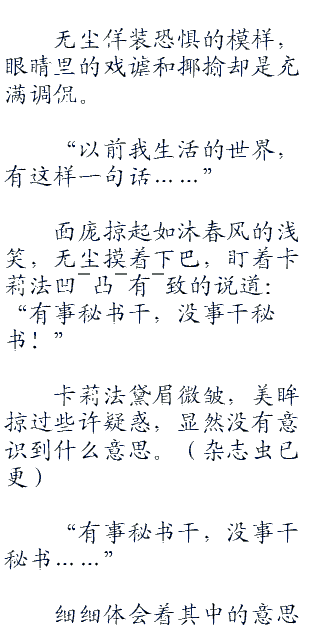 无尘佯装恐惧的模样，
眼睛里的戏谑和揶揄却是充
满调侃。
“以前我生活的世界，
有这样一句话……”
西庞掠起如沐春风的浅
笑，无尘摸着下巴，盯着卡
莉法凹¯凸¯有¯致的说道：
“有事秘书干，没事干秘
书！”
卡莉法黛眉微皱，美眸
掠过些许疑惑，显然没有意
识到什么意思。（杂志虫已
更）
“有事秘书干，没事干
秘书……”
细细体会着其中的意思